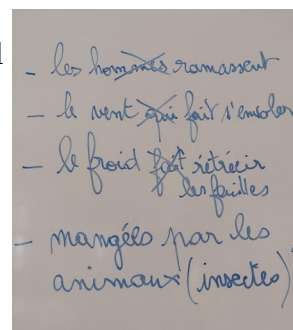 - les hommes ramassent
- le vent qui fait s'envoler
- le froid fait rétrécir
les feuilles
- mangées par les
animaux (insectes)